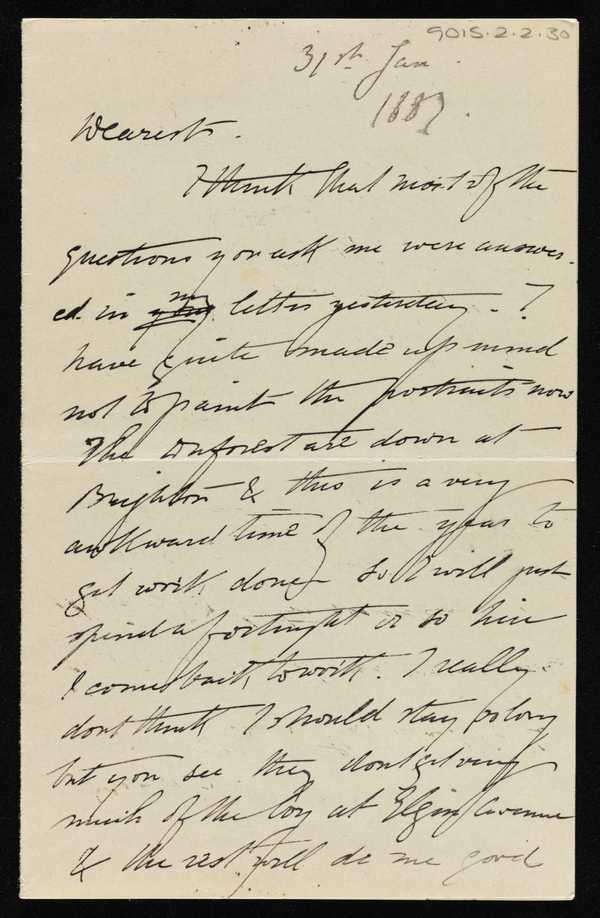 9015.2.2.30
31st Jan
1887.
Dearest.
I think that most of the
questions you ask me were answer-
ed in my letter yesterday. I
have quite made up mind
not to paint the portraits now
The are down at
Brighton & this is a very
awkward time of the year to
get work done so I will just
spend a fortnight or so here
& come back to work. I really
dont think I should stay so long
but you see they dont get very
much of the boy at Elgin Avenue
& the rest will do me good